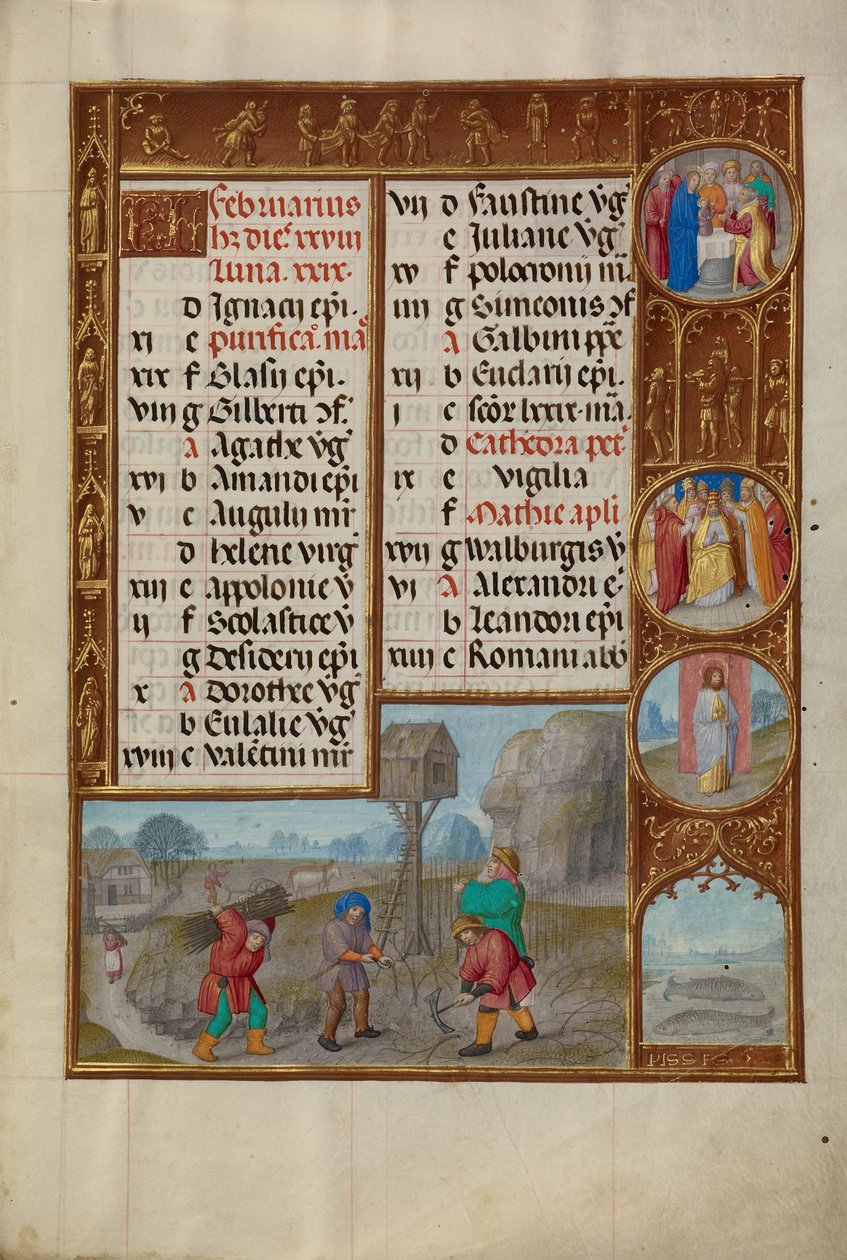 KL Februarius
hꝫ dieˢ xxviii
Luna . xxix.
d Ignacij ep̄i.
xi e purificaᵒ. maᵉ
xix f Blasij ep̄i.
viii g Gilberti ↄf.
A Agathe v̄g
xvi b Amandi ep̄i
v c Augulij mr̄
d helene virḡ
xiii e appolonie v̄
ii f Scolastice v̄
g Desiderij ep̄i
x A dorothe v̄g
b Eulalie v̄g
xviii c valētini mr̄
vii d Faustine v̄g
e Juliane v̄g
xv f polocronij m̄
iiii g Simeonis ↄf
A Galbini pp̄e
xii b Eucharij ep̄i.
i c sc̄oꝝ lxxix. ma.
d Cathedra pet̄
ix e vigilia
f Mathie apli
xvii g walburgis v̄
vi A Alexandri e͂
b Leandori ep̄i
xiiii c Romani abb̄
PISSES